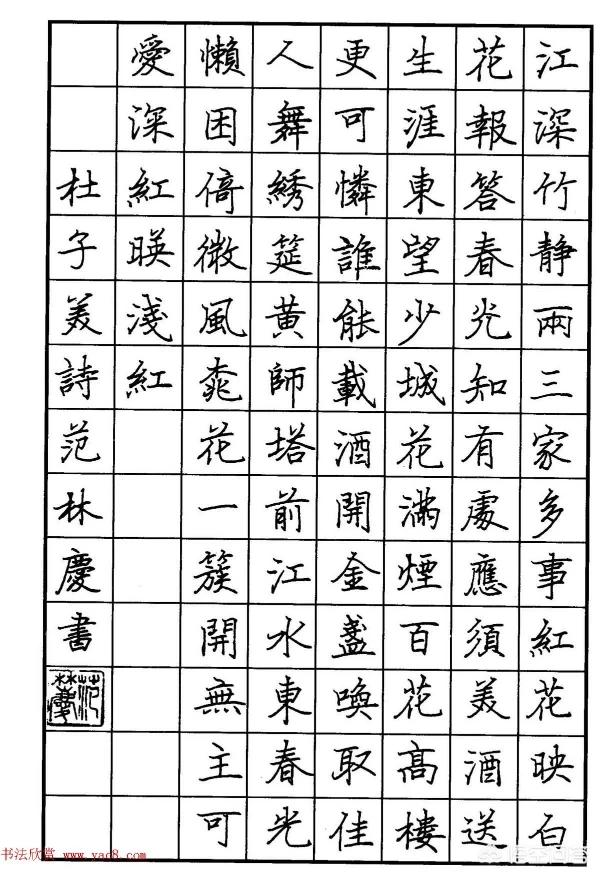 江深竹静兩三家多事紅花映白
花報答春光知有處應須美酒送
生涯東望少城花滿煙百花高樓
更可憐誰能載酒開金盞喚取佳
人舞綉筵黃師塔前江水東春光
懶困倚微風桃花一簇開無主可
愛深紅暎淺紅
杜子美詩范林慶書
书法欣赏 www.yac8.com